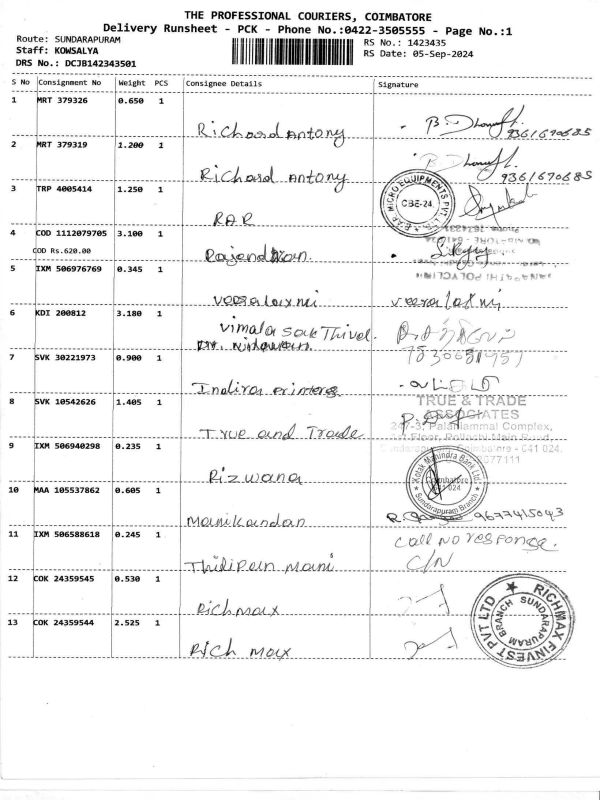 THE PROFESSIONAL COURIERS, COIMBATORE
Delivery Runsheet - PCK - Phone No.:0422-3505555 - Page No.:1
Route: SUNDARAPURAM
Staff: KOWSALYA
DRS No.: DCJB142343501
RS No.: 1423435
RS Date: 05-Sep-2024
S No Consignment No Weight PCS Consignee Details Signature
1 MRT 379326 0.650 1 Richard Antony 9361670685
2 MRT 379319 1.200 1 Richard Antony 9361670685
3 TRP 4005414 1.250 1 RAR
MICRO EQUIPMENTS PVT LTD CBE-24
4 COD 1112079705 3.100 1 Rajendran
COD Rs.620.00
5 IXM 506976769 0.345 1
6 KDI 200812 3.180 1 Vimala
7 SVK 30221973 0.900 1 Indira printers
8 SVK 10542626 1.405 1 True and Trade
TRUE & TRADE
ASSOCIATES
Palaniammal Complex,
9 IXM 506940298 0.235 1 Rizwana
Kotak Mahindra Bank Ltd. Coimbatore 641 024 Sundarapuram Branch
10 MAA 105537862 0.605 1 Manikandan 9677415043
11 IXM 506588618 0.245 1 Thilipan Mani call no response.
C/N
12 COK 24359545 0.530 1 Richmax
13 COK 24359544 2.525 1 Rich max
RICHMAX FINVEST PVT LTD BRANCH SUNDARAPURAM